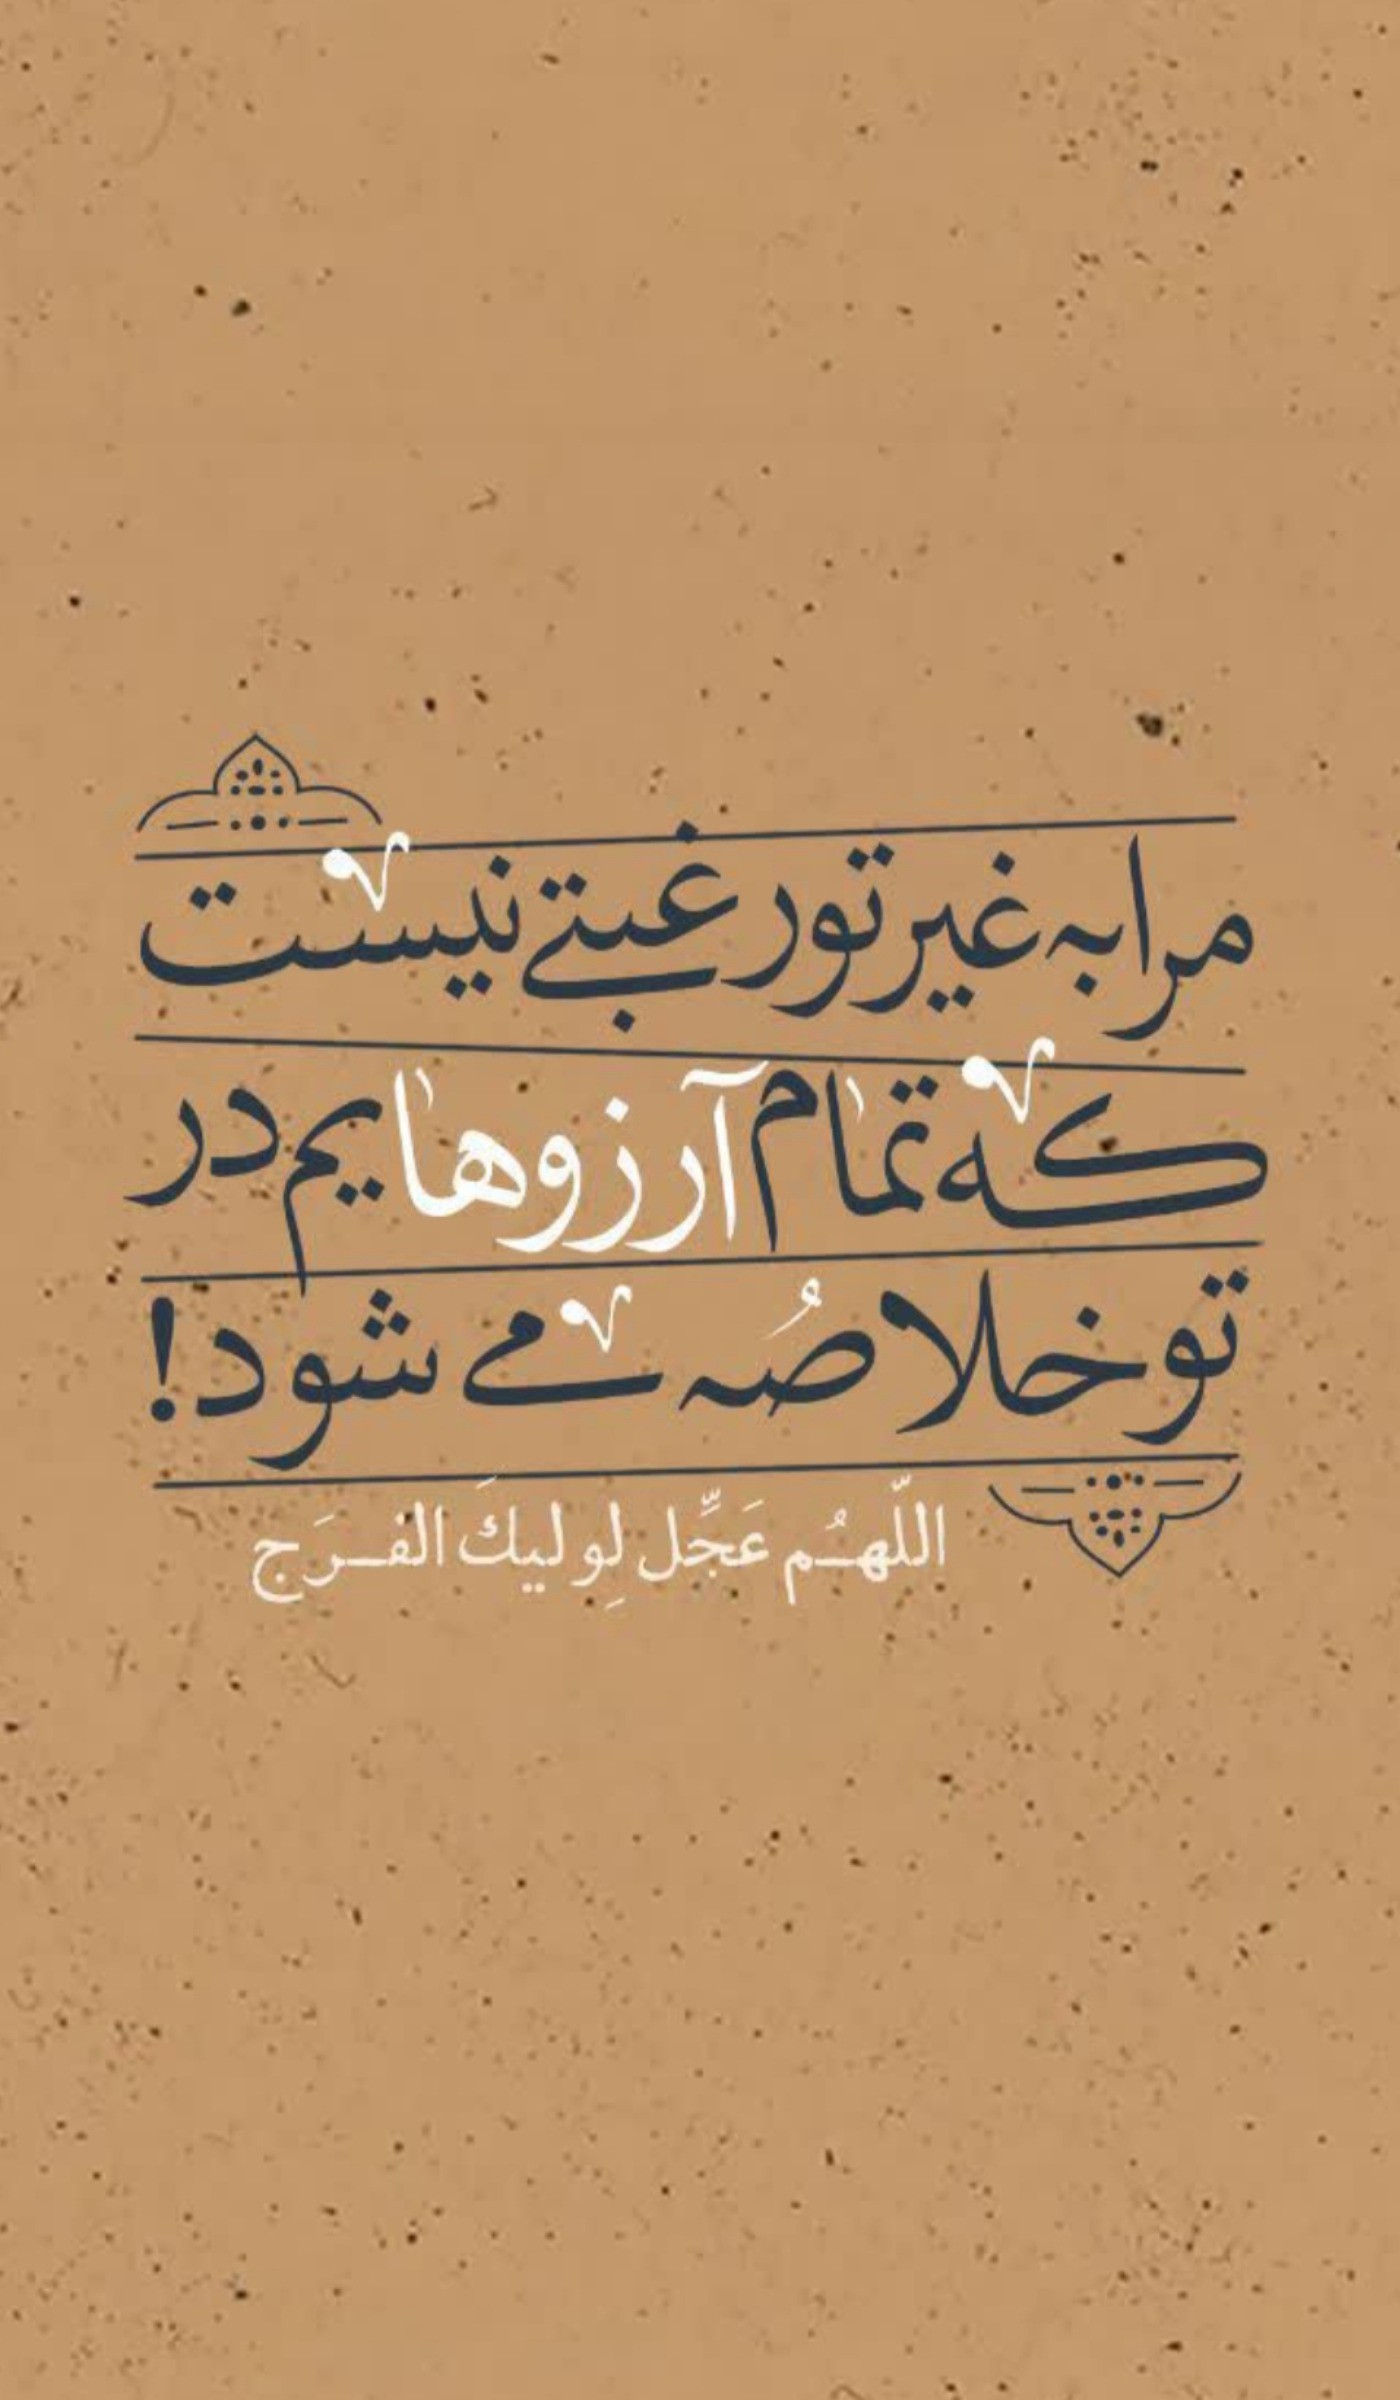 مرا به غیر تو رغبتے نیست
که تمام آرزوهایم در
تو خلاصُه مے شود!
اللّهُم عَجِّل لِولیكَ الفرَج